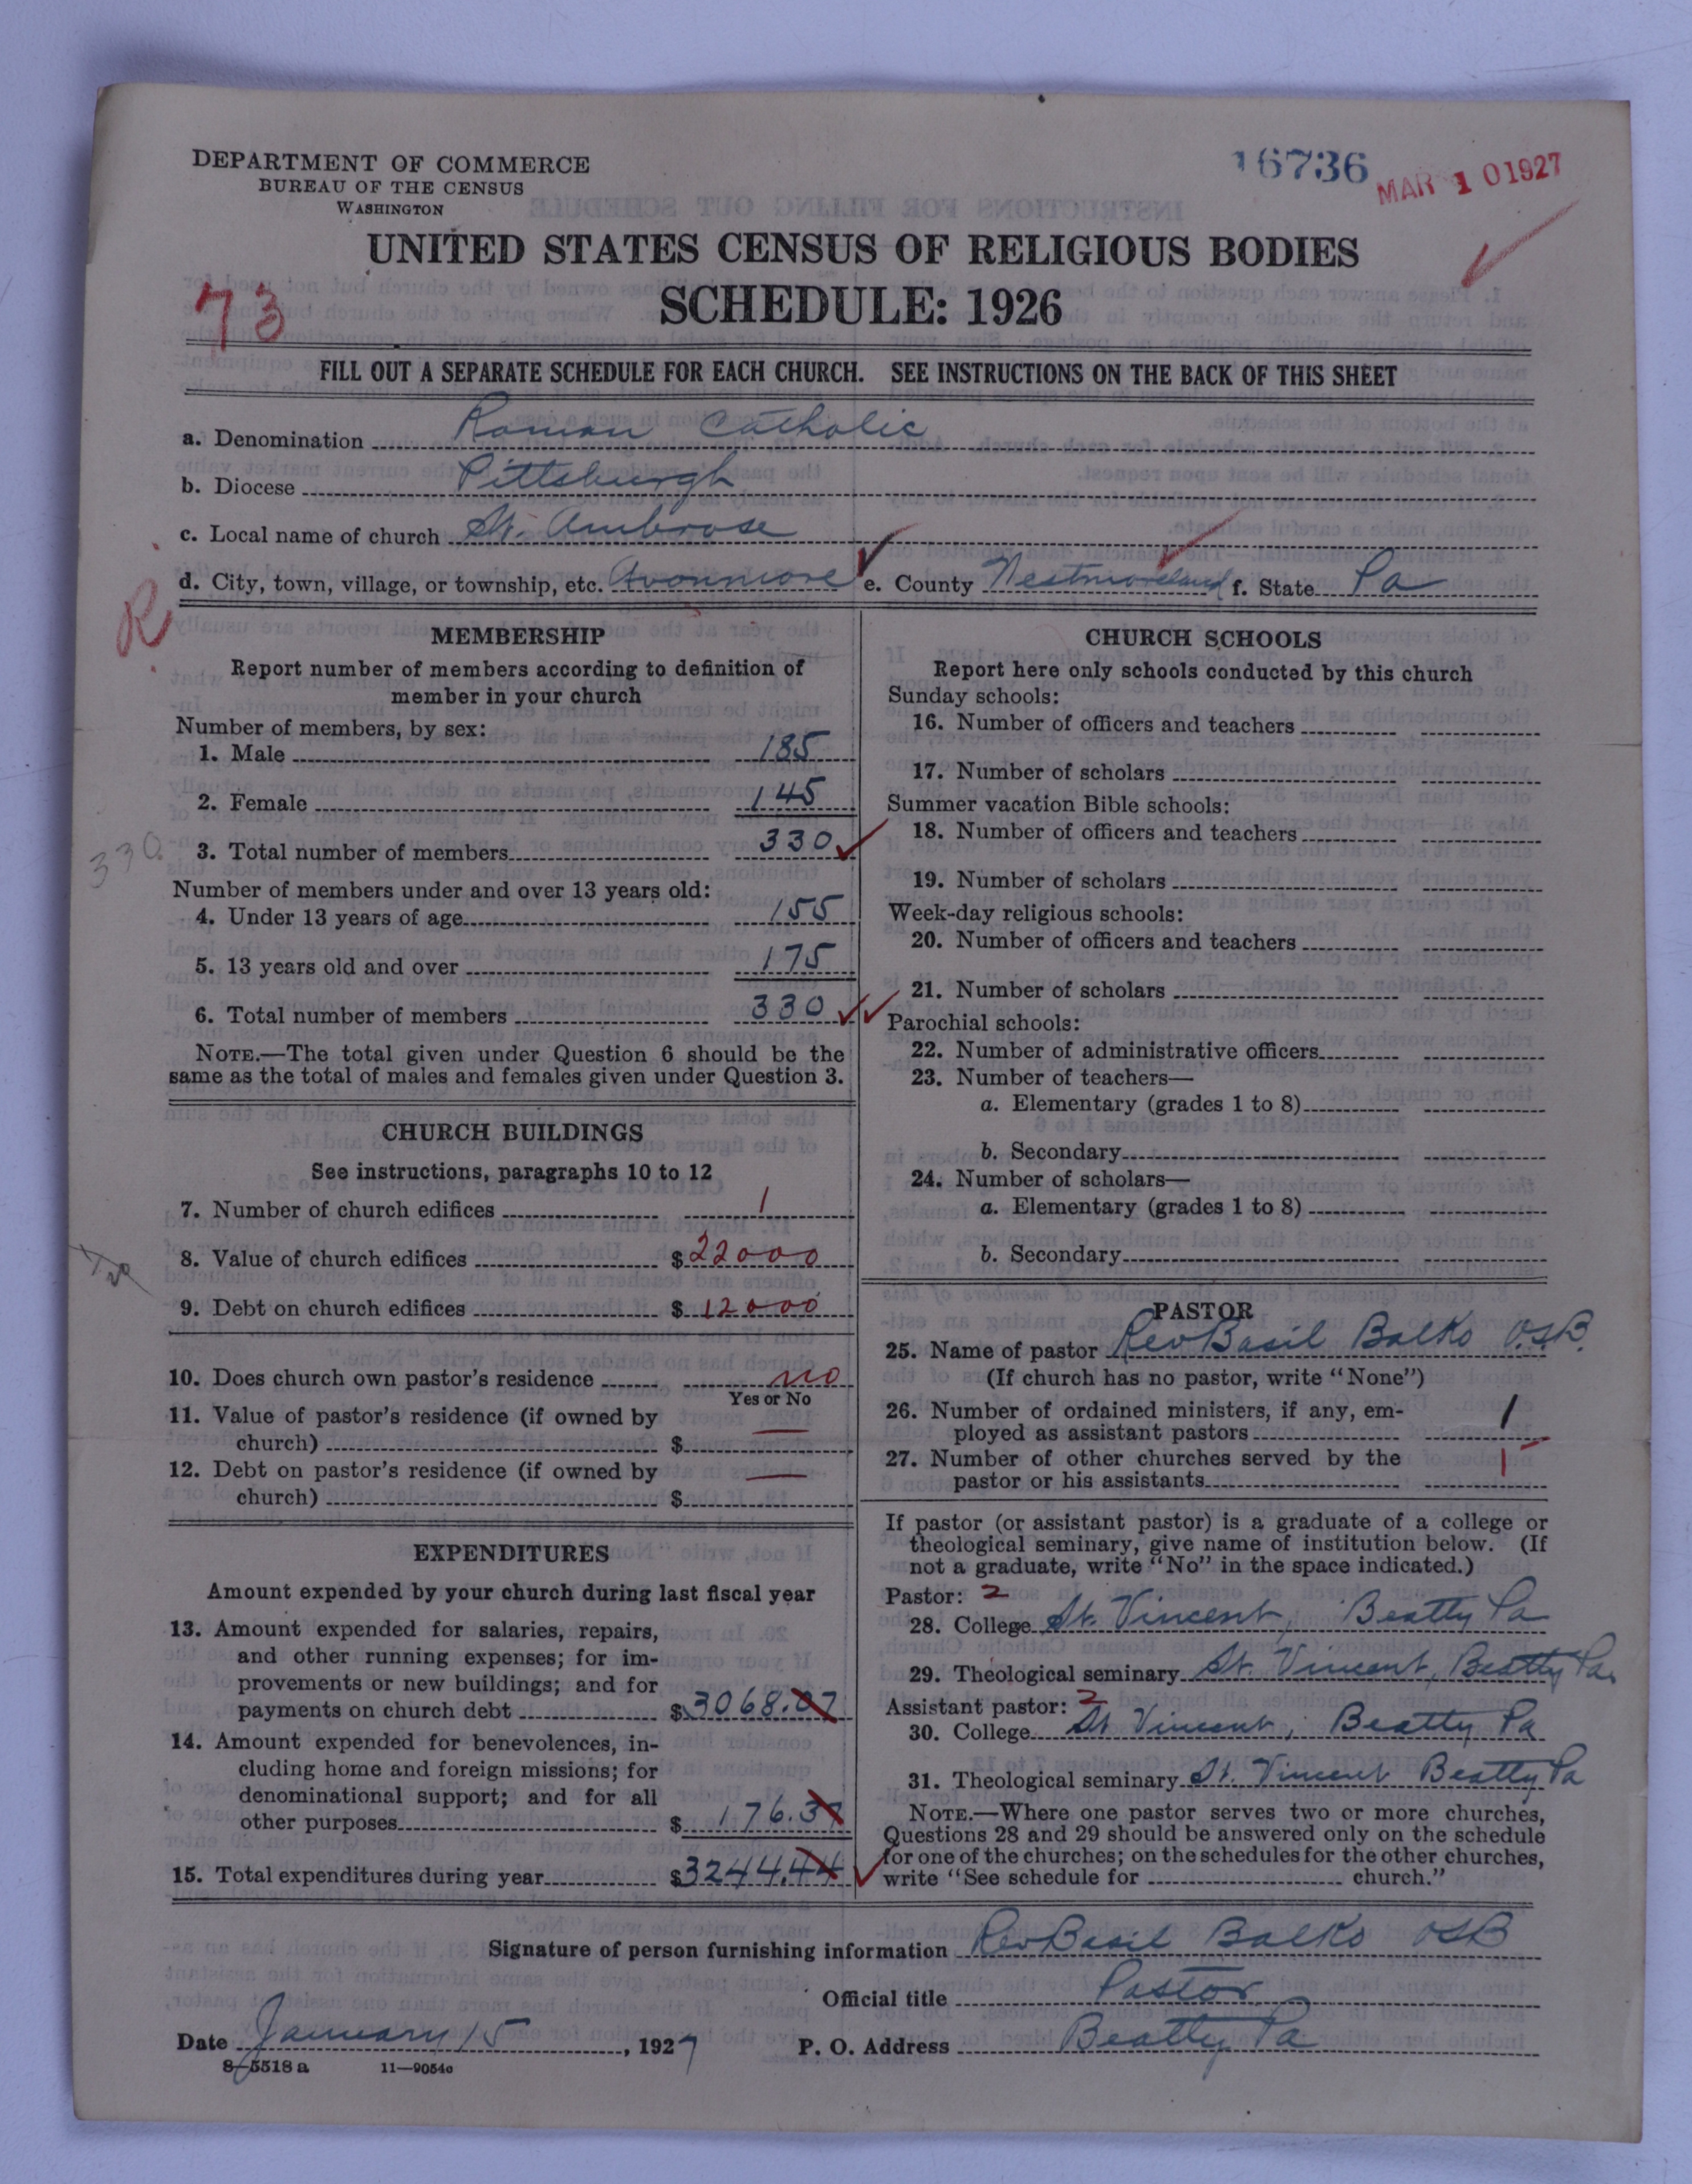 DEPARTMENT OF COMMERCE
BUREAU OF THE CENSUS
WASHINGTON
16736
MAR 10 1927
UNITED STATES CENSUS OF RELIGIOUS BODIES
SCHEDULE: 1926
73
FILL OUT A SEPARATE SCHEDULE FOR EACH CHURCH. SEE INSTRUCTIONS ON THE BACK OF THIS SHEET
a. Denomination Roman Catholic
b. Diocese Pittsburgh
c. Local name of church St. Ambrose
d. City, town, village, or township, etc. Avonmore e. County Westmoreland f. State Pa
R
MEMBERSHIP
Report number of members according to definition of
member in your church
Number of members, by sex:
1. Male 185
2. Female 145
3. Total number of members 330
330
Number of members under and over 13 years old:
4. Under 13 years of age 155
5. 13 years old and over 175
6. Total number of members 330
NOTE.—The total given under Question 6 should be the
same as the total of males and females given under Question 3.
CHURCH BUILDINGS
See instructions, paragraphs 10 to 12
7. Number of church edifices 1
8. Value of church edifices $22000
9. Debt on church edifices $12000
10. Does church own pastor's residence no
Yes or No
11. Value of pastor's residence (if owned by
church) $ —
12. Debt on pastor's residence (if owned by
church) $ —
EXPENDITURES
Amount expended by your church during last fiscal year
13. Amount expended for salaries, repairs,
and other running expenses; for im-
provements or new buildings; and for
payments on church debt $3068.07
14. Amount expended for benevolences, in-
cluding home and foreign missions; for
denominational support; and for all
other purposes $176.37
15. Total expenditures during year $3244.44
CHURCH SCHOOLS
Report here only schools conducted by this church
Sunday schools:
16. Number of officers and teachers
17. Number of scholars
Summer vacation Bible schools:
18. Number of officers and teachers
19. Number of scholars
Week-day religious schools:
20. Number of officers and teachers
21. Number of scholars
Parochial schools:
22. Number of administrative officers
23. Number of teachers—
a. Elementary (grades 1 to 8)
b. Secondary
24. Number of scholars—
a. Elementary (grades 1 to 8)
b. Secondary
PASTOR
25. Name of pastor Rev Basil Balko O.S.B.
(If church has no pastor, write "None")
26. Number of ordained ministers, if any, em-
ployed as assistant pastors 1
27. Number of other churches served by the
pastor or his assistants 1
If pastor (or assistant pastor) is a graduate of a college or
theological seminary, give name of institution below. (If
not a graduate, write "No" in the space indicated.)
Pastor: 2
28. College St. Vincent, Beatty Pa
29. Theological seminary St. Vincent, Beatty Pa.
Assistant pastor: 2
30. College St Vincent, Beatty Pa
31. Theological seminary St. Vincent Beatty Pa
NOTE.—Where one pastor serves two or more churches,
Questions 28 and 29 should be answered only on the schedule
for one of the churches; on the schedules for the other churches,
write "See schedule for church."
Signature of person furnishing information Rev Basil Balko OSB
Official title Pastor
Date January 15, 1927 P. O. Address Beatty Pa
8-5518 a 11—9054c